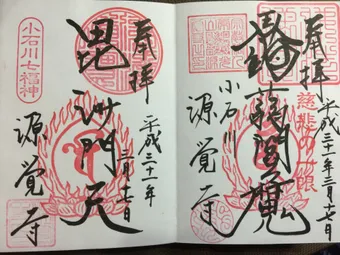 奉拝
平成三十一年三月十七日
慈悲の一眼
蒟蒻閻魔
小石川
源覚寺
奉拝
平成三十一年
三月十七日
毘沙門天
小石川七福神
源覚寺